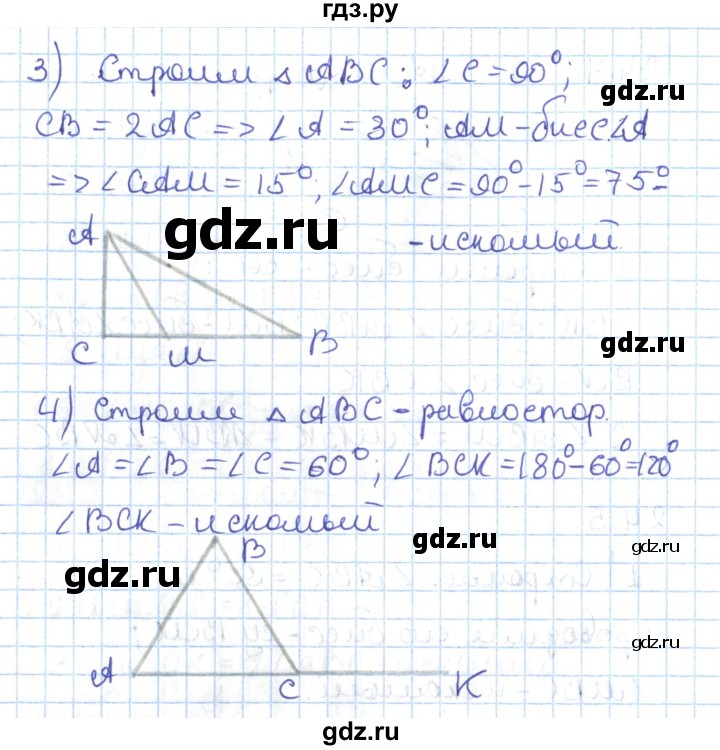 гдз.ру
3) Строим △ ABC: ∠C = 90°;
gdz.ru
CB = 2AC => ∠A = 30°; AM - бисс ∠A
=> ∠CAM = 15°, ∠AMC = 90° - 15° = 75° -
gdz.ru
- искомый.
A
gdz.ru
C M B
4) Строим △ ABC - равностор.
∠A = ∠B = ∠C = 60°; ∠BCK = 180° - 60° = 120°
∠BCK - искомый
gdz.ru
gdz.ru
B
gdz.ru
gdz.ru
A C K
gdz.ru